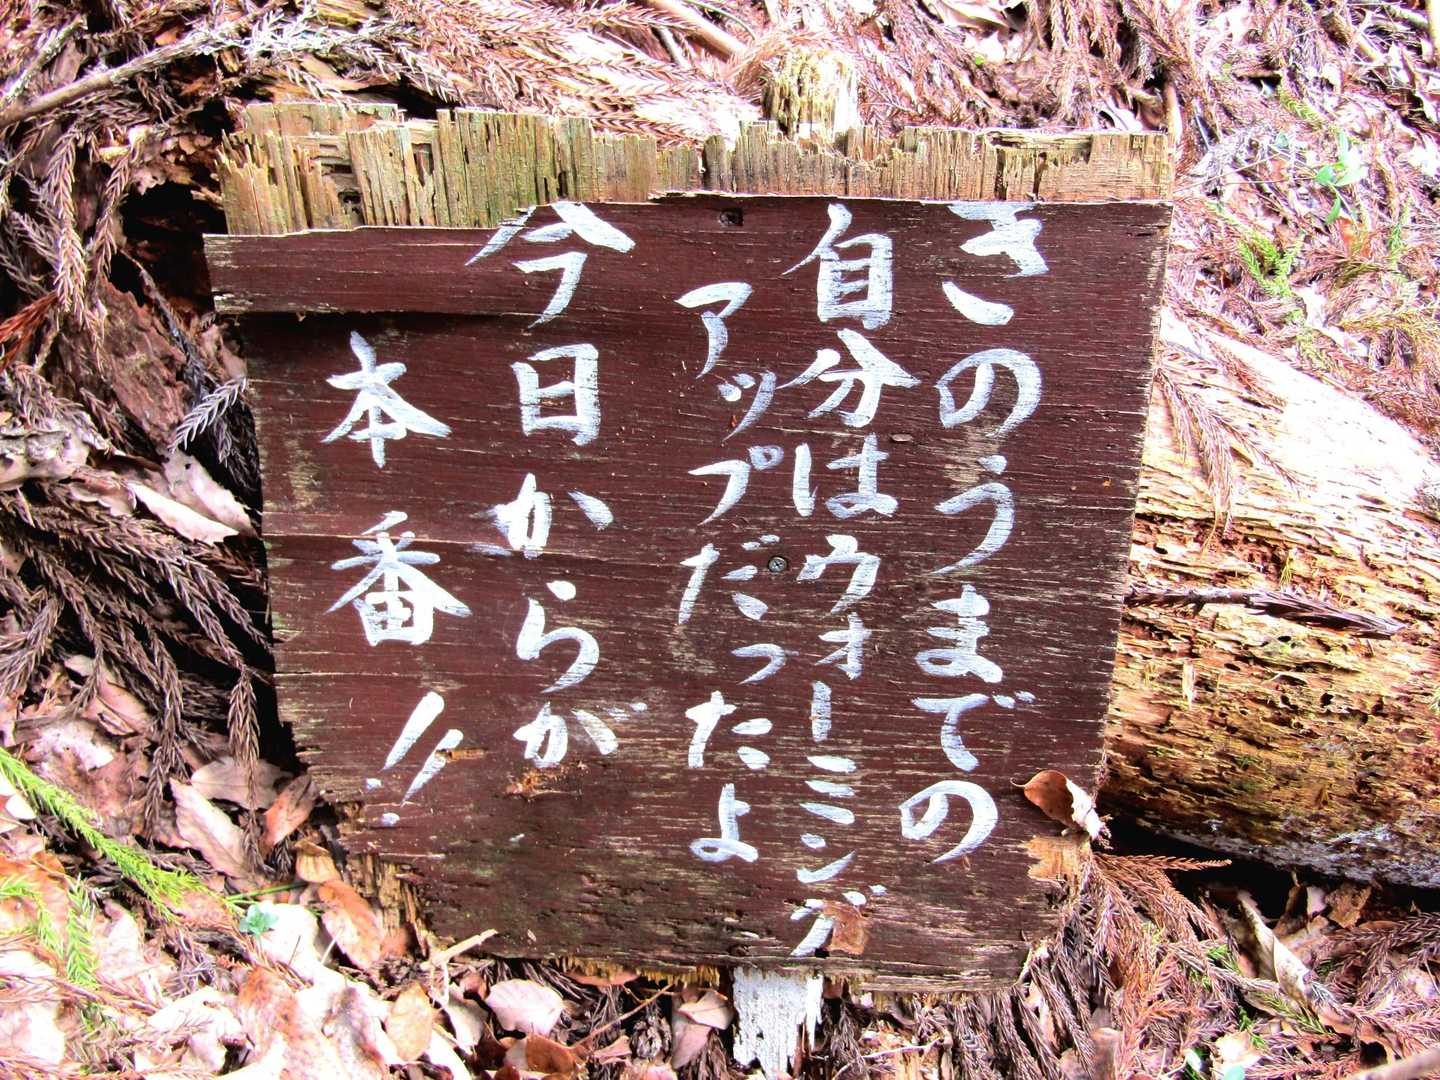 きのうまでの
自分はウォーミング
アップだったよ
今日からが
本番!!